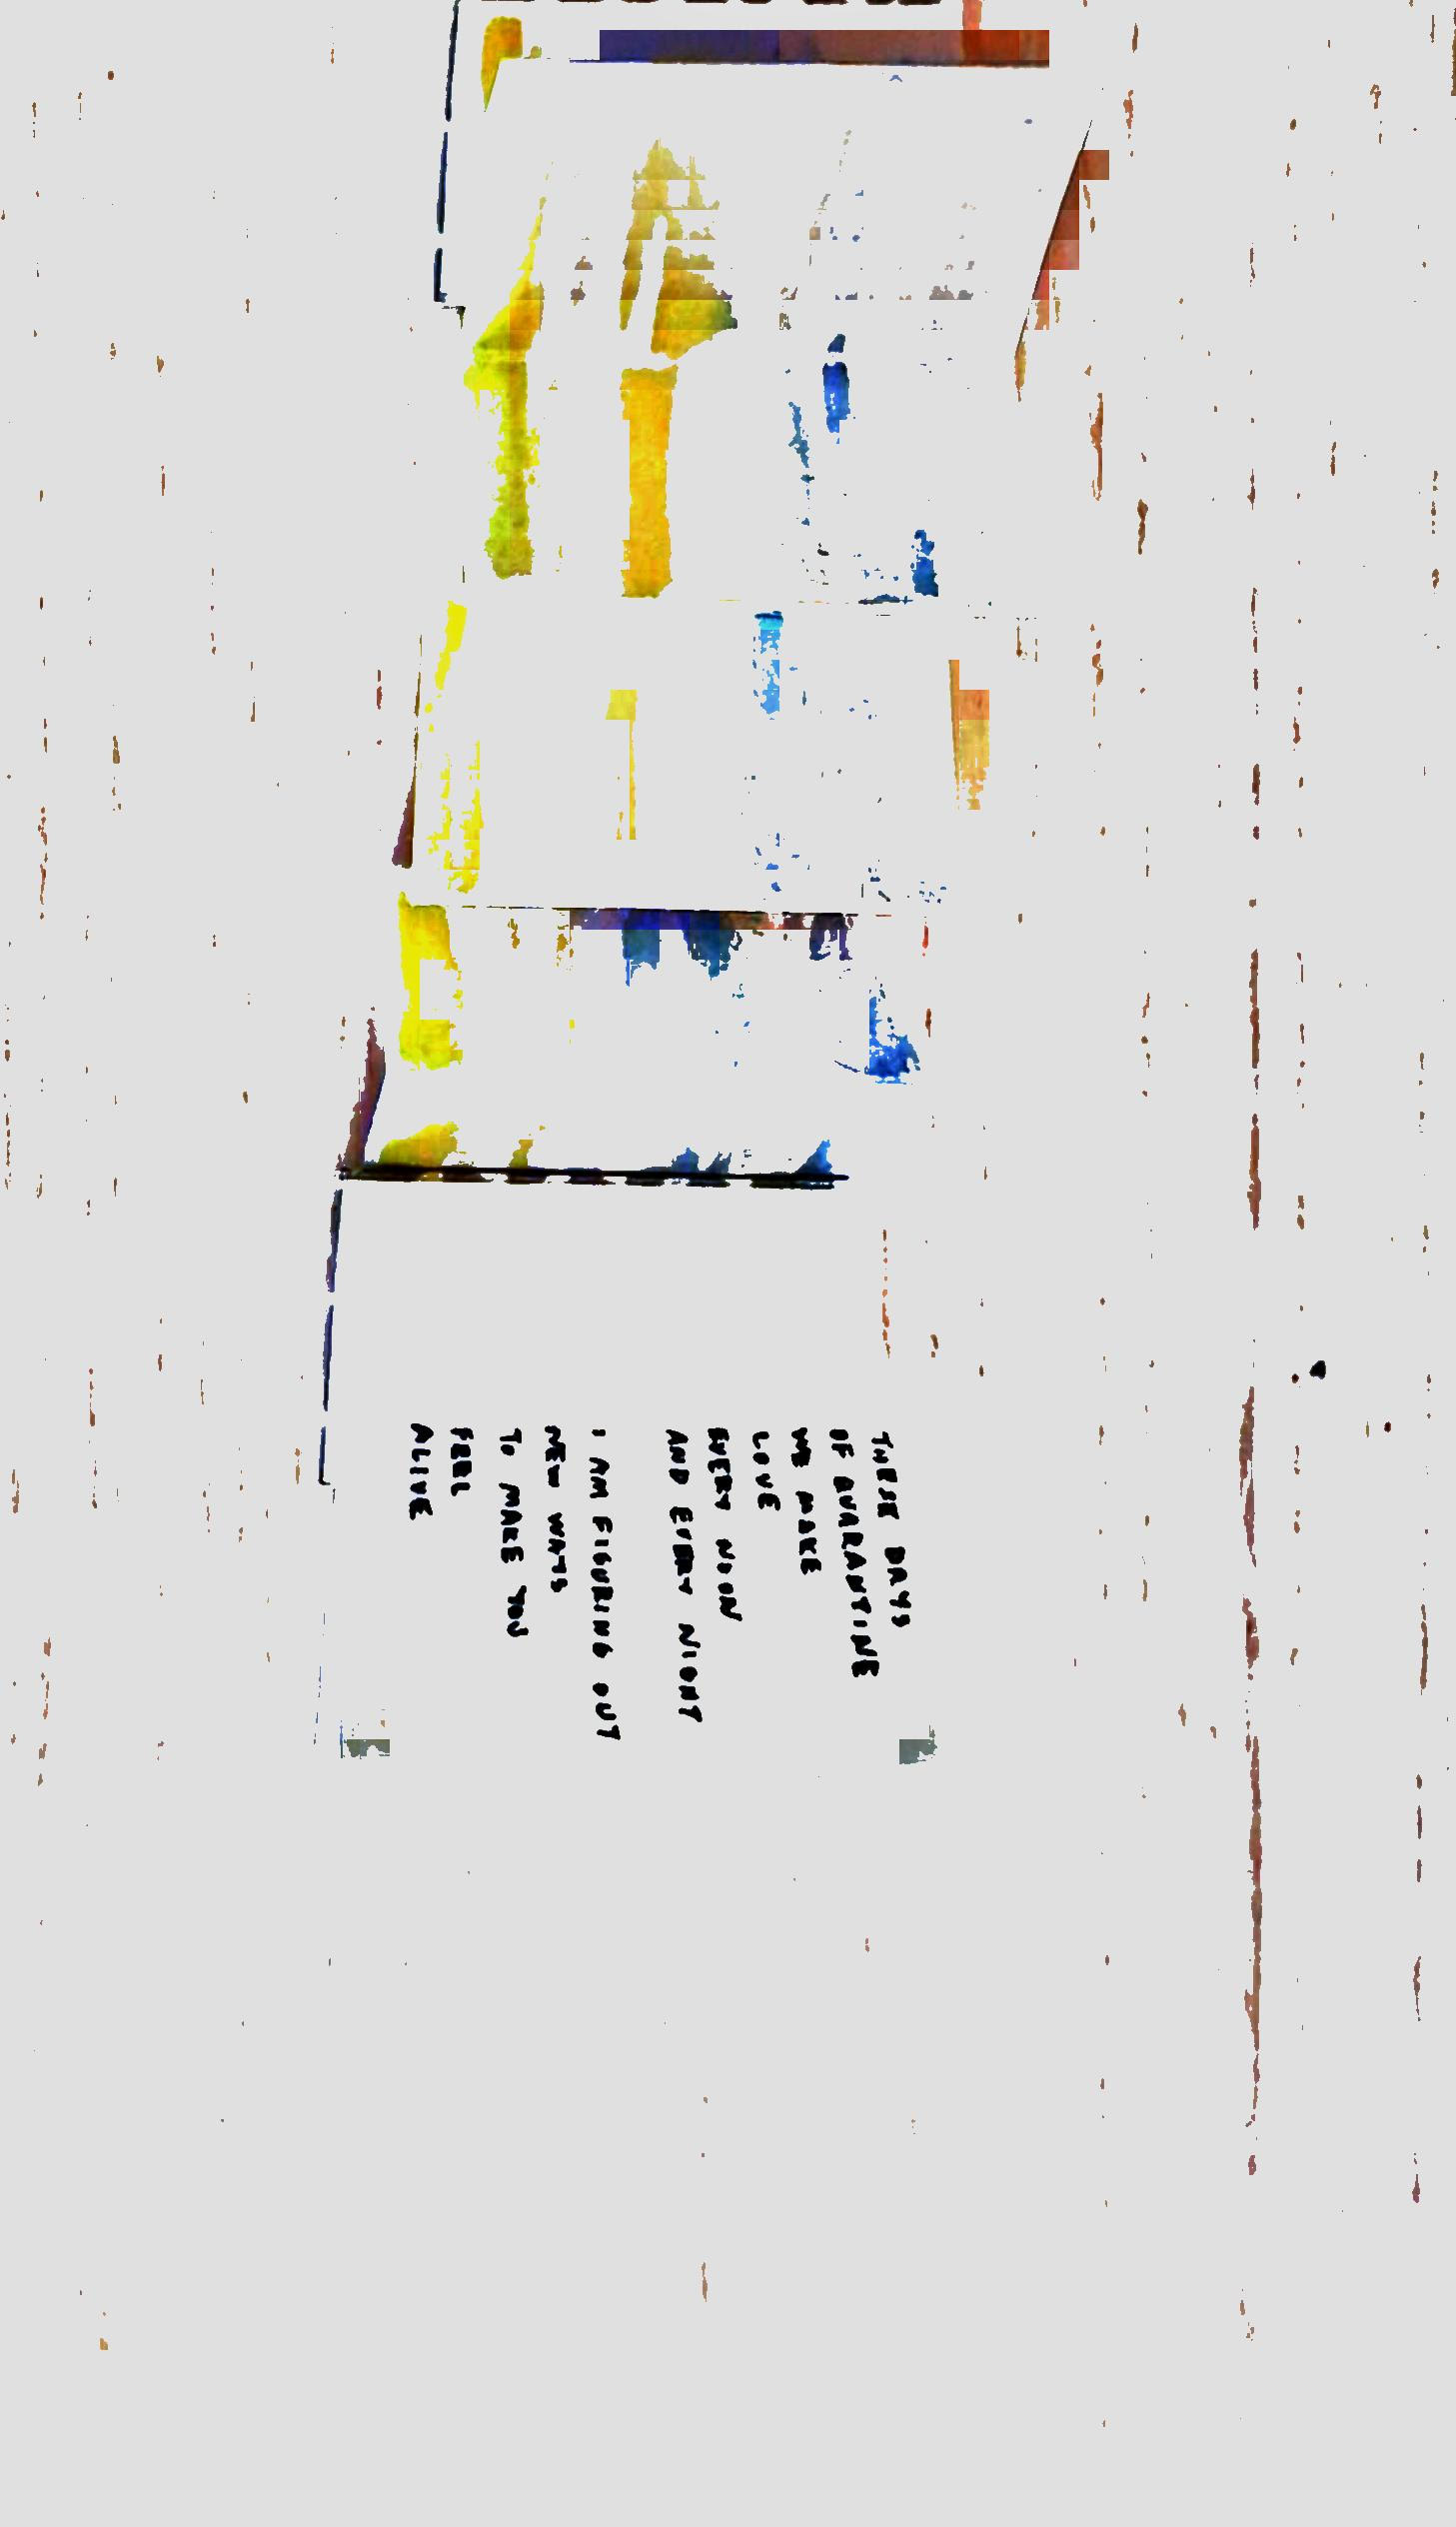 THESE DAYS
OF QUARANTINE
WE MAKE
LOVE
EVERY NOON
AND EVERY NIGHT
I AM FIGURING OUT
NEW WAYS
TO MAKE YOU
FEEL
ALIVE